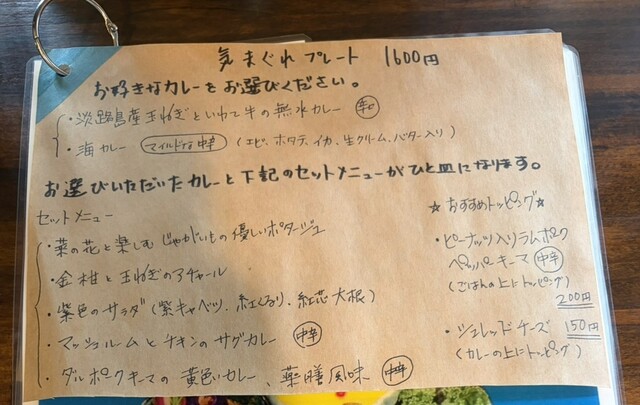 気まぐれプレート 1600円
お好きなカレーをお選びください。
・淡路島産玉ねぎといわて牛の無水カレー 辛口
・海カレー マイルドな中辛 (エビ、ホタテ、イカ、生クリーム、バター入り)
お選びいただいたカレーと下記のセットメニューがひと皿になります。
セットメニュー
・菜の花と楽しむじゃがいもの優しいポタージュ
・金柑と玉ねぎのアチャール
・紫色のサラダ (紫キャベツ、紅くるり、紅芯大根)
・マッシュルームとチキンのサグカレー 中辛
・ダルポークキーマの黄色いカレー、薬膳風味 中辛
☆おすすめトッピング☆
・ピーナッツ入りラムポーク
ペッパーキーマ 中辛
(ごはんの上にトッピング)
200円
・シュレッドチーズ 150円
(カレーの上にトッピング)